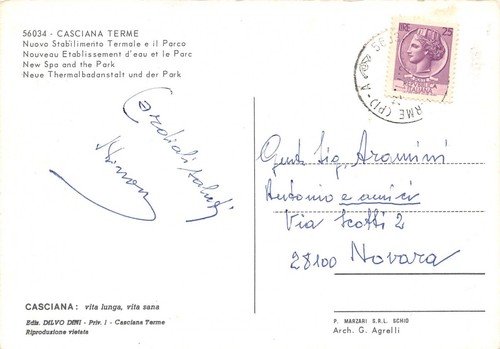 56034 - CASCIANA TERME
Nuovo Stabilimento Termale e il Parco
Nouveau Etablissement d'eau et le Parc
New Spa and the Park
Neue Thermalbadanstalt und der Park
LIRE 25
ITALIANA
Cordiali saluti
Gent. Sig. Aramini
Antonio e amici
Via Scotti 2
28100 Novara
CASCIANA : vita lunga, vita sana
Ediz. DILVO DINI - Priv. 1 - Casciana Terme
Riproduzione vietata
P. MARZARI S.R.L. SCHIO
Arch. G. Agrelli